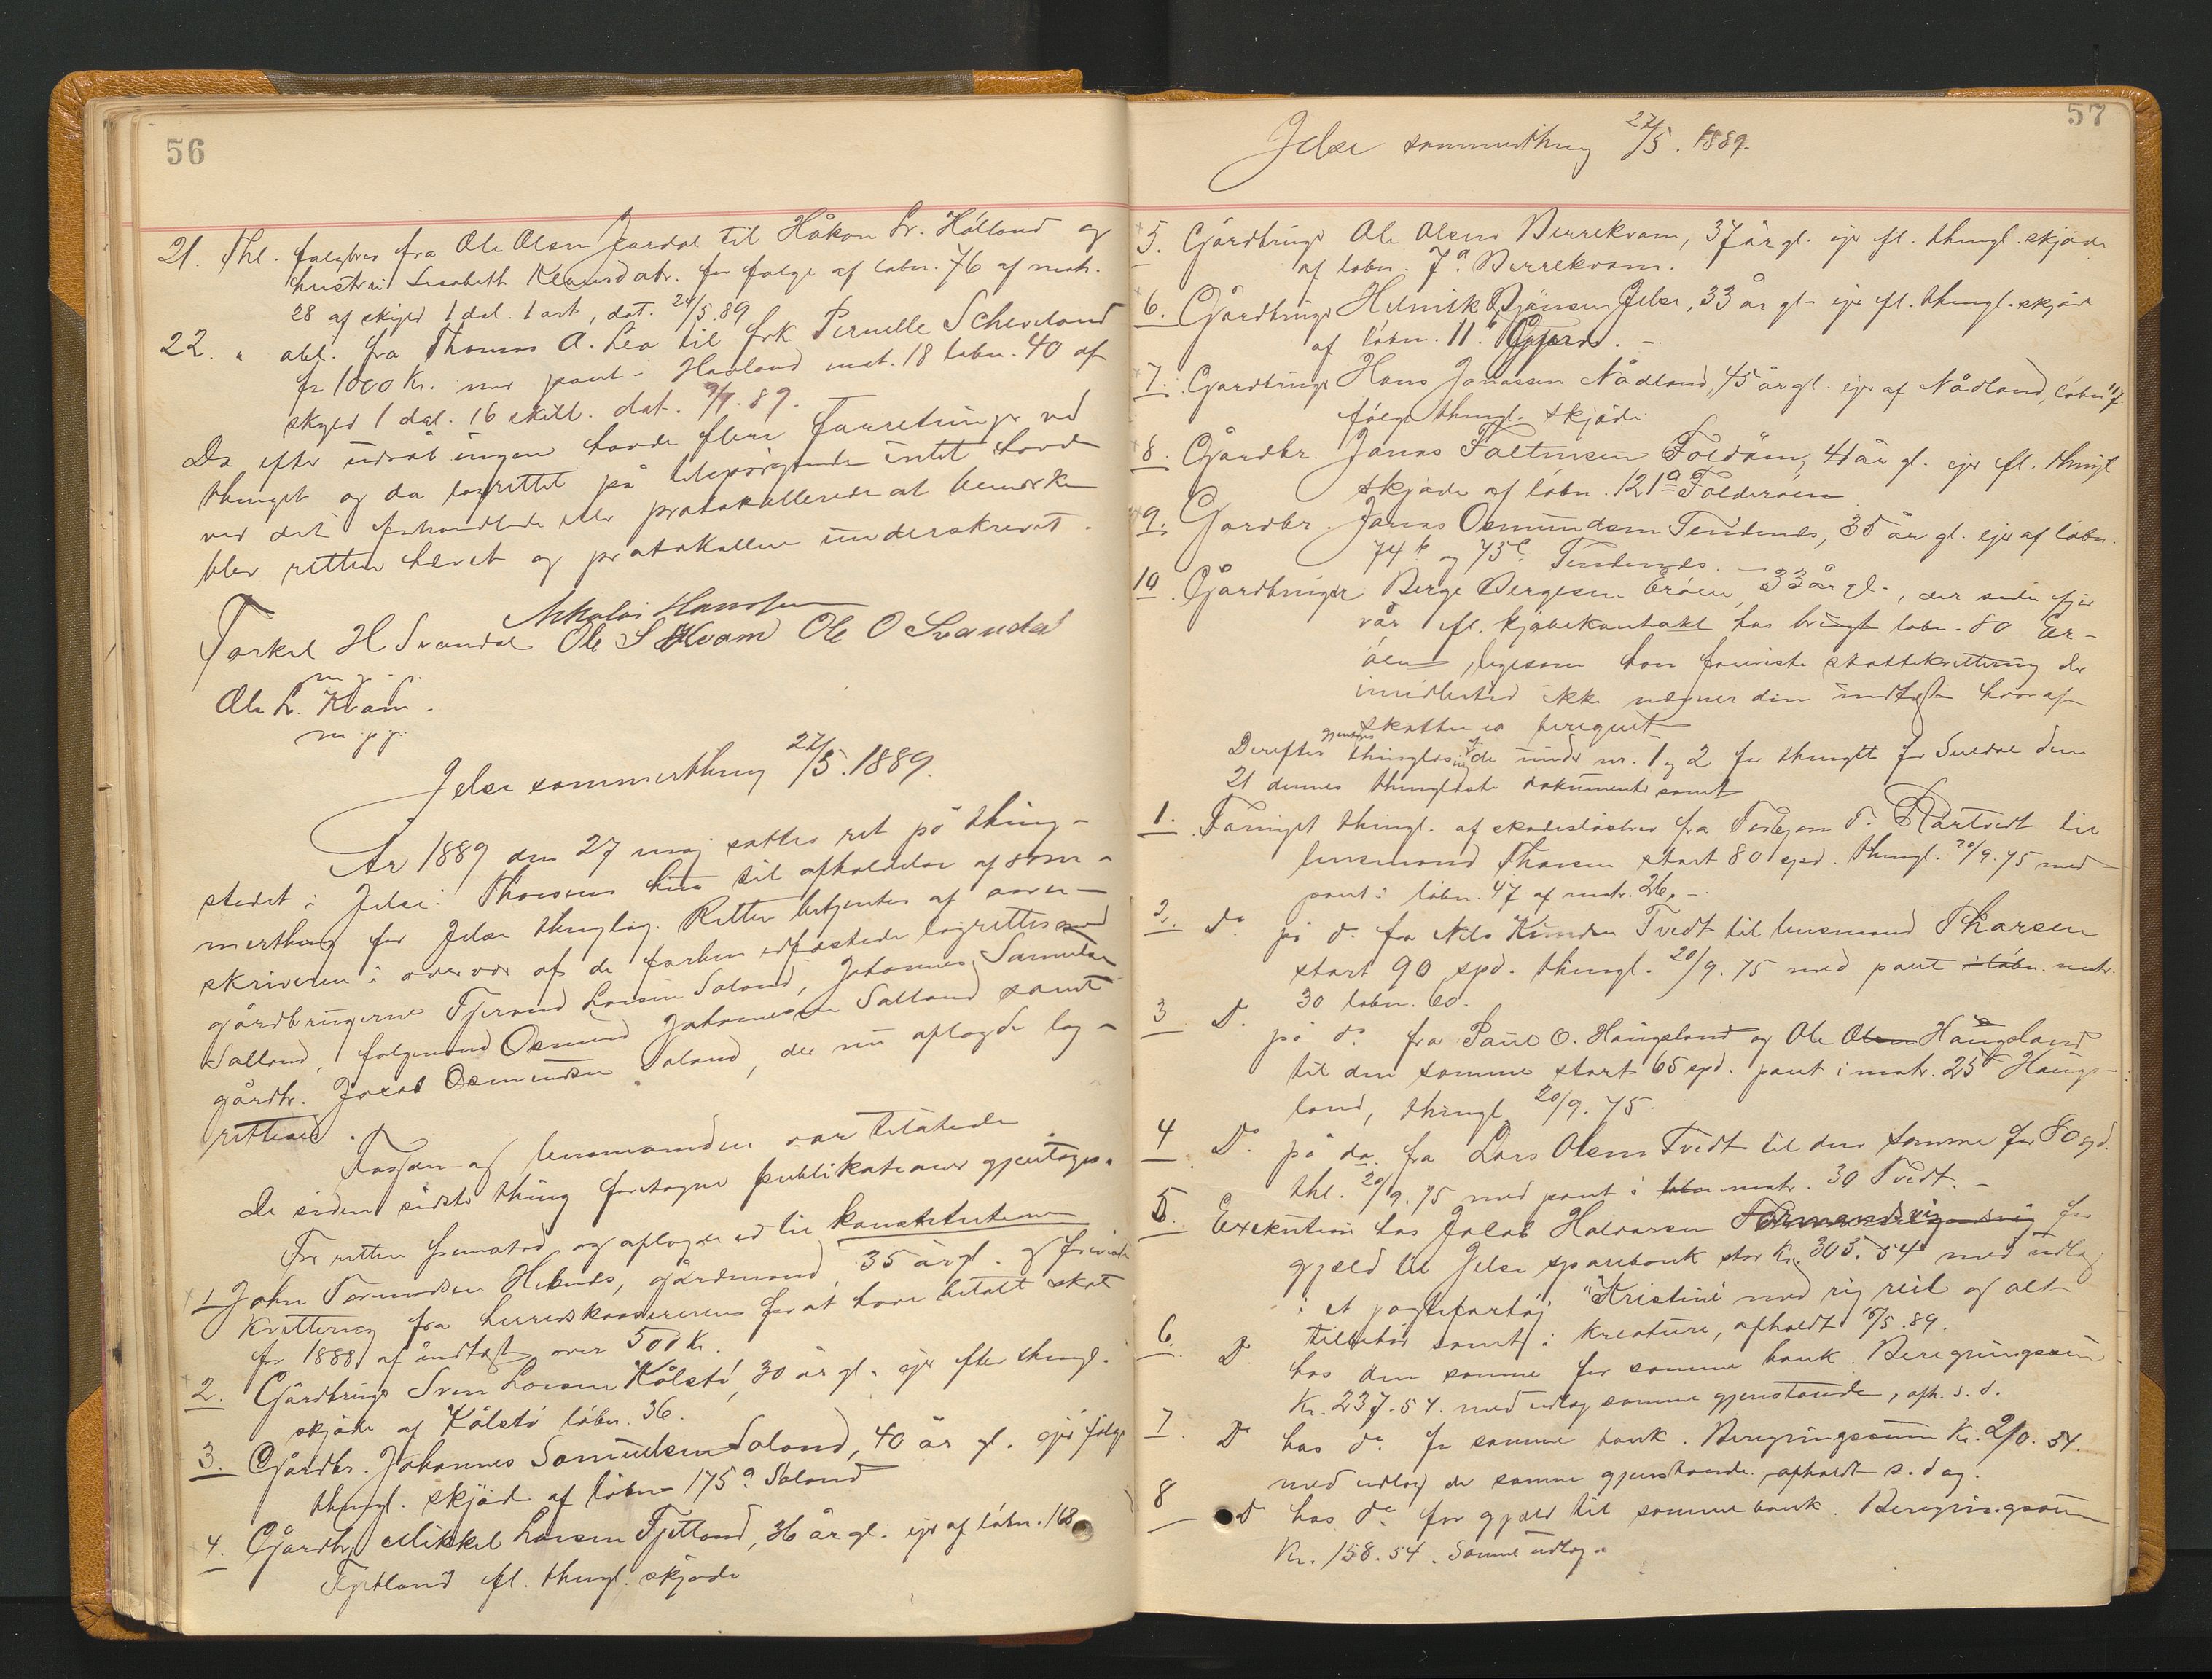 56
21. Thl. følgebrev fra Ole Olsen Jørdal til Håkon Sv. Hålland og
hustru Lisabeth Klausdatr. for følge af løbn. 76 af matr.
28 af skyld 1 dal. 1 ort, dat. 24/5.89
22. " obl. fra Thomas A. Lea til frk. Pernelle Scheveland
for 1000 Kr. med pant i Havland mat. 18 løbn. 40 af
skyld 1 dal. 16 skill. dat. 89.
Da efter udråb ingen havde flere forretninger ved
thinget og da lagrettet på tilspørgende intet havde
ved det forhandlede eller protokollerede at bemærke
blev retten hævet og protokollen underskrevet.
Nikolai Hanssen
Torkel H Svandal Ole S Kvam Ole O Svandal
Ole L. Kvam.
m. p. p.
Jelse sommerthing 27/5.1889.
År 1889 den 27 maj sattes ret på thing-
stedet i Jelse: Thorsens hus til afholdelse af som-
merthing for Jelse thinglag. Retten betjentes af soren-
skriveren i overvær af de forhen edfæstede lagrettesmænd
gårdbrugerne Tjerand Larsen Soland, Johannes Samuelsen
Salland, følgemand Osmund Johannessen Salland samt
gårdbr. Jacob Osmundsen Soland, der nu aflagde lag-
retteed.
Fogden og lensmanden var tilstede.
De siden sidste thing foretagne publikationer gjentoges.
For retten fremstod og aflagde ed til konstitutionen
1 John Tormodsen Hebnes, gårdmand, 35 år gl. og foreviste
kvittering fra herredskassereren for at have betalt skat
for 1888 af indtægt over 500 Kr.
2. Gårdbruger Sven Larsen Kålstø, 30 år gl. ejer efter thingl.
skjøde af Kålstø løbn. 36.
3. Gårdbr. Johannes Samuelsen Soland, 40 år gl. ejer følge
thingl. skjøde af løbn. 175a Soland
4. Gårdbr. Mikkel Larsen Fjetland, 36 år gl. ejer af løbn. 168
Fjetland efl. thingl. skjøde
57
Jelse sommerthing 27/5. 1889.
5. Gårdbruger Ole Olsen Berrekvam, 37 år gl. ejer efl. thingl. skjøde
af løbn. 7a Berrekvam.
6. Gårdbruger Helmik Jelse, 33 år gl. ejer efl. thingl. skjøde
af løbn. 11. Gjerde.
7. Gardbruger Hans Jonassen Nådland, 45 år gl. ejer af Nådland, løbn. 117
følge thingl. skjøde
8. Gårdbr. Jonas Foldøen, 41 år gl. ejer efl. thingl.
skjøde af løbn. 121a Folderøen
9. Gardbr. Jonas Osmundsen Tendenes, 35 år gl. ejer af løbn.
74 b og 75 c Tendenes.
10. Gårdbruger Berge Bergesen Erøen, 33 år gl., der siden ifjor
vår efl. kjøbekontrakt har brugt løbn. 80 Er-
øen, ligesom han foreviste skattekvittering der
imidlertid ikke nævner den indtægt hvoraf
skatten er beregnet
Derefter gjentoges thinglæsning af de under nr. 1 og 2 for thinget for Suldal den
21 dennes thinglæste dokumenter samt
1. Fornyet thingl. af skadesløsbrev fra Torbjørn T. Bårtvedt til
lensmand Thorsen stort 80 spd. thingl. 20/9.75 med
pant i løbn. 47 af matr. 26.
2. do på do fra Nils Knudsen Tvedt til lensmand Thorsen
stort 90 spd. thingl. 20/9.75 med pant i løbn. matr.
30 løbn. 60.
3 Do på do fra Paul O. Haugsland og Ole Olsen Haugsland
til den samme stort 65 spd. pant i matr. 25 Haugs-
land, thingl. 20/9.75
4 Do på do. fra Lars Olsen Tvedt til den samme for 80 spd.
thl. 20/9.75 med pant i løbn matr. 30 Tvedt.
5. Exekution hos Jakob Halvorsen for
gjæld til Jelse sparebank stor Kr. 305.54 med udlæg
i et jagtefartøj "Kristine" med rig reil og alt
tilbehør samt i kreature, afholdt 5/5.89.
6. Do hos den samme for samme bank. Beregningssum
Kr. 237.54. med udlæg samme gjenstande, afh. s. d.
7. Do hos do for samme bank. Beregningssum Kr. 210.54.
med udlæg de samme gjenstande, afholdt s. dag.
8 Do hos do for gjæld til samme bank. Beregningssum
Kr. 158.54. Samme udlæg.